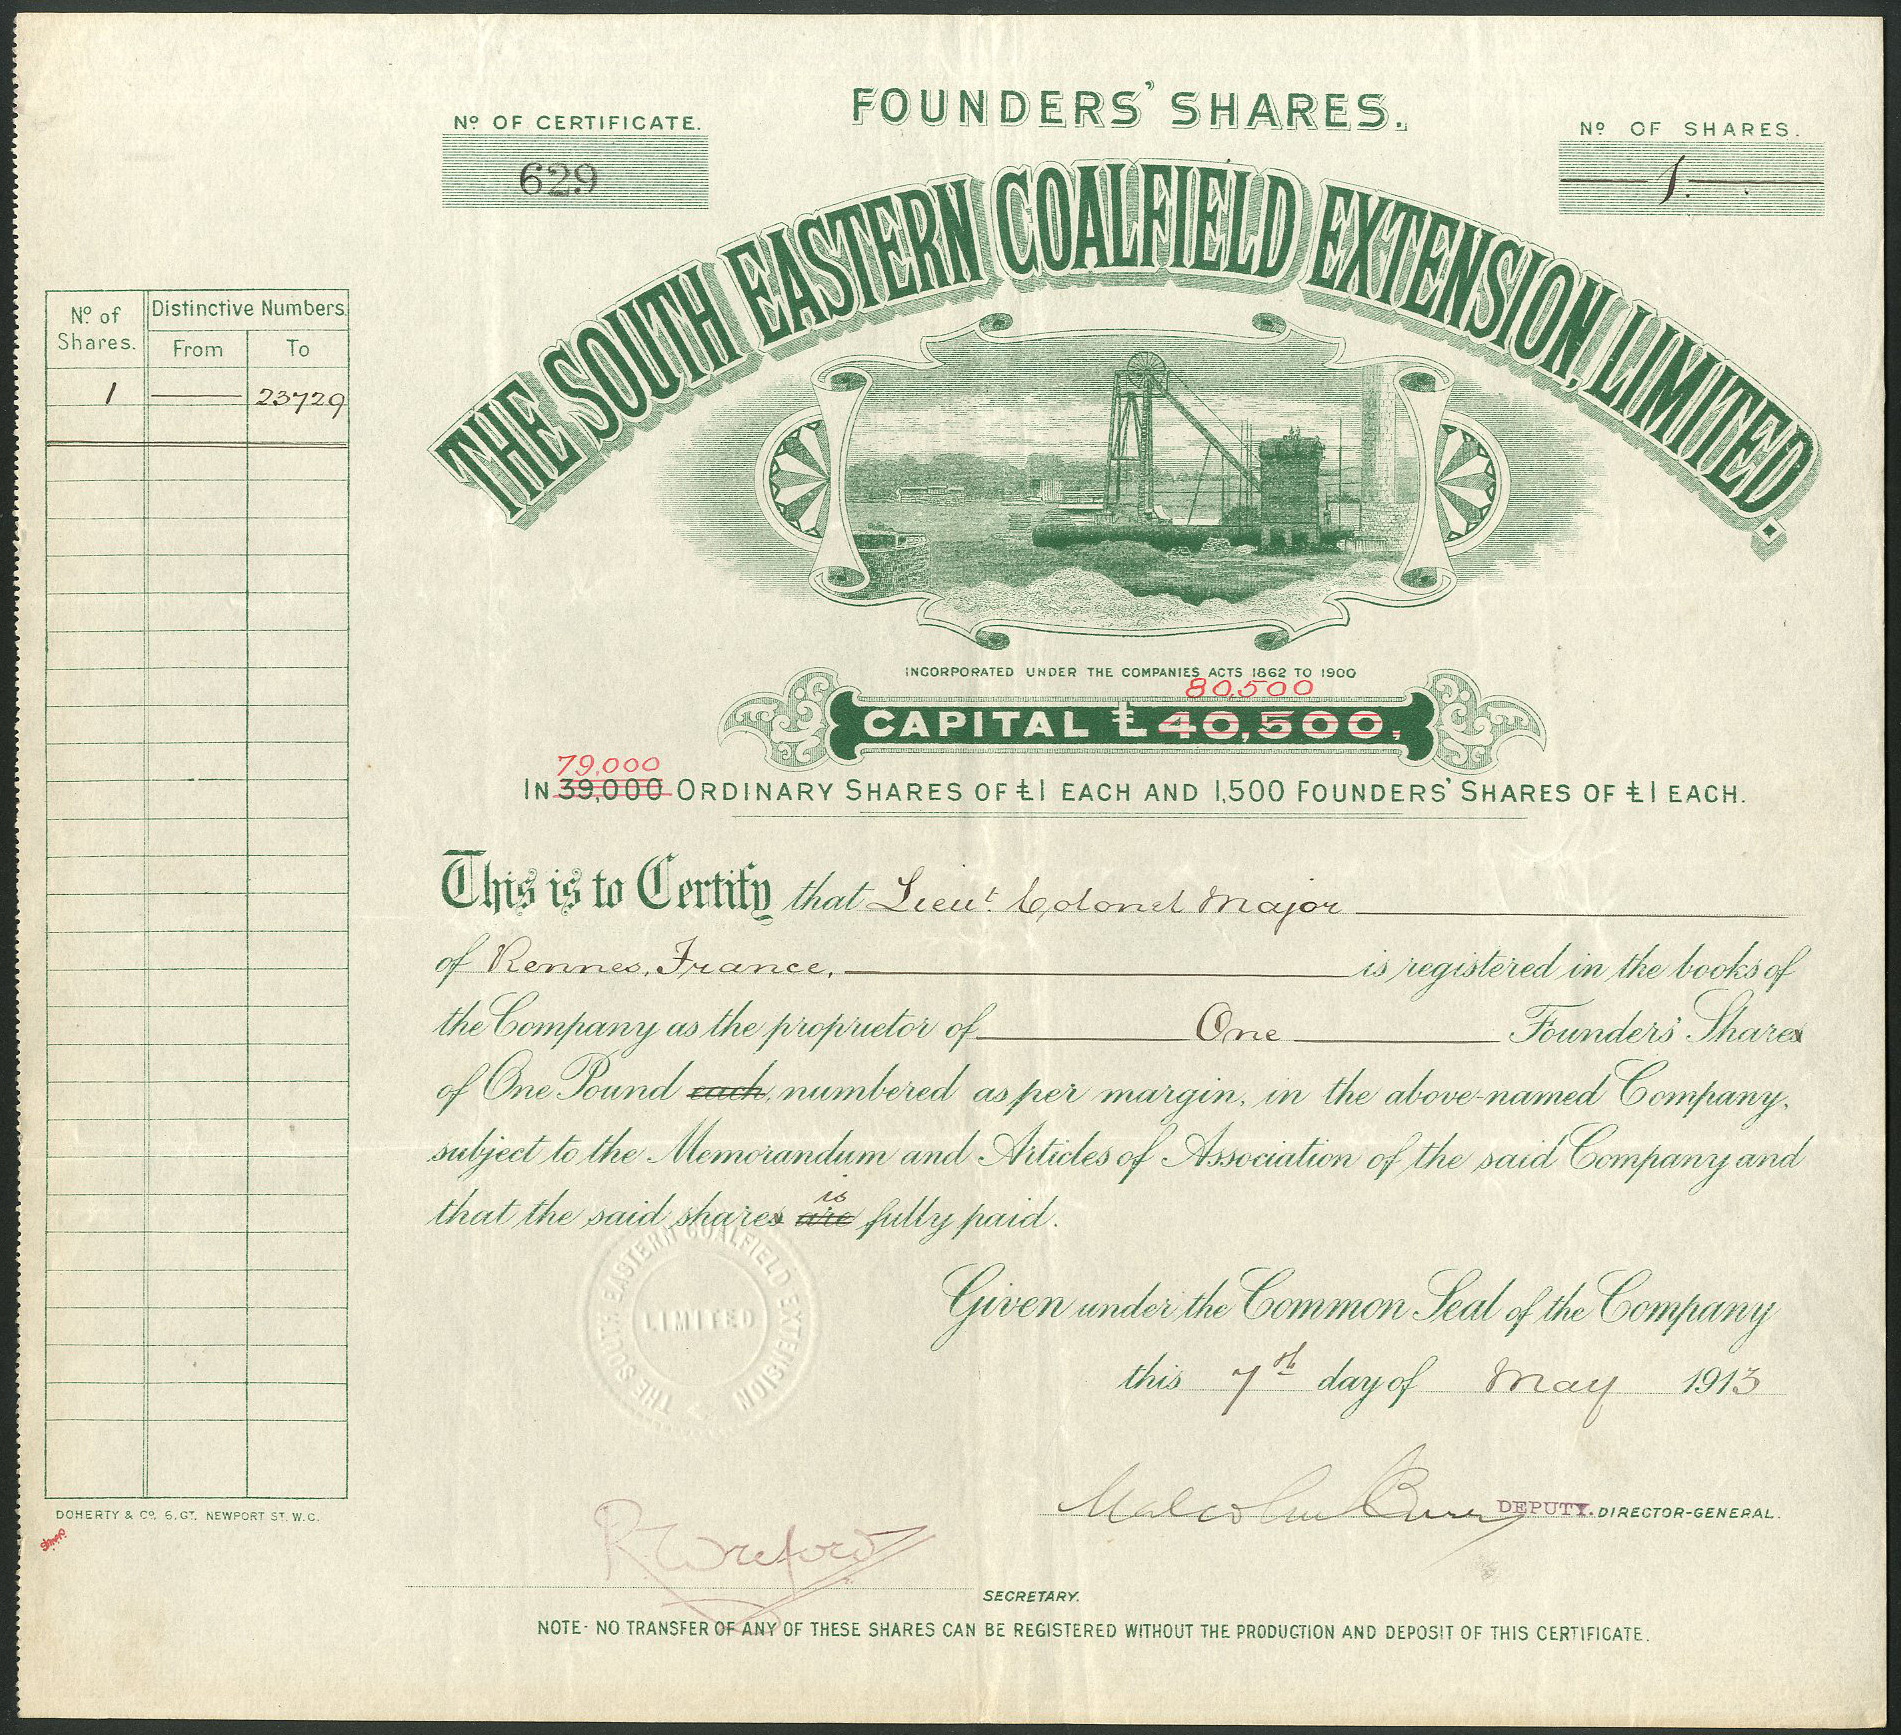 FOUNDERS' SHARES.
Nº OF CERTIFICATE.
629
Nº OF SHARES.
1.
THE SOUTH EASTERN COALFIELD EXTENSION, LIMITED.
Nº of Shares.
Distinctive Numbers
From
To
1 — 23729
INCORPORATED UNDER THE COMPANIES ACTS 1862 TO 1900
80,500
CAPITAL £40,500.
79,000
IN 39,000 ORDINARY SHARES OF £1 EACH AND 1,500 FOUNDERS' SHARES OF £1 EACH.
This is to Certify that Lieut. Colonel Major
of Rennes, France, is registered in the books of
the Company as the proprietor of One Founders' Shares
of One Pound each, numbered as per margin, in the above-named Company,
subject to the Memorandum and Articles of Association of the said Company and
is
that the said shares are fully paid.
THE SOUTH EASTERN COALFIELD EXTENSION
LIMITED
Given under the Common Seal of the Company
this 7th day of May 1913
Malcolm Burr DEPUTY. DIRECTOR-GENERAL.
DOHERTY & Cº. 6, GT. NEWPORT ST. W.C.
R. Wreford
SECRETARY.
NOTE- NO TRANSFER OF ANY OF THESE SHARES CAN BE REGISTERED WITHOUT THE PRODUCTION AND DEPOSIT OF THIS CERTIFICATE.